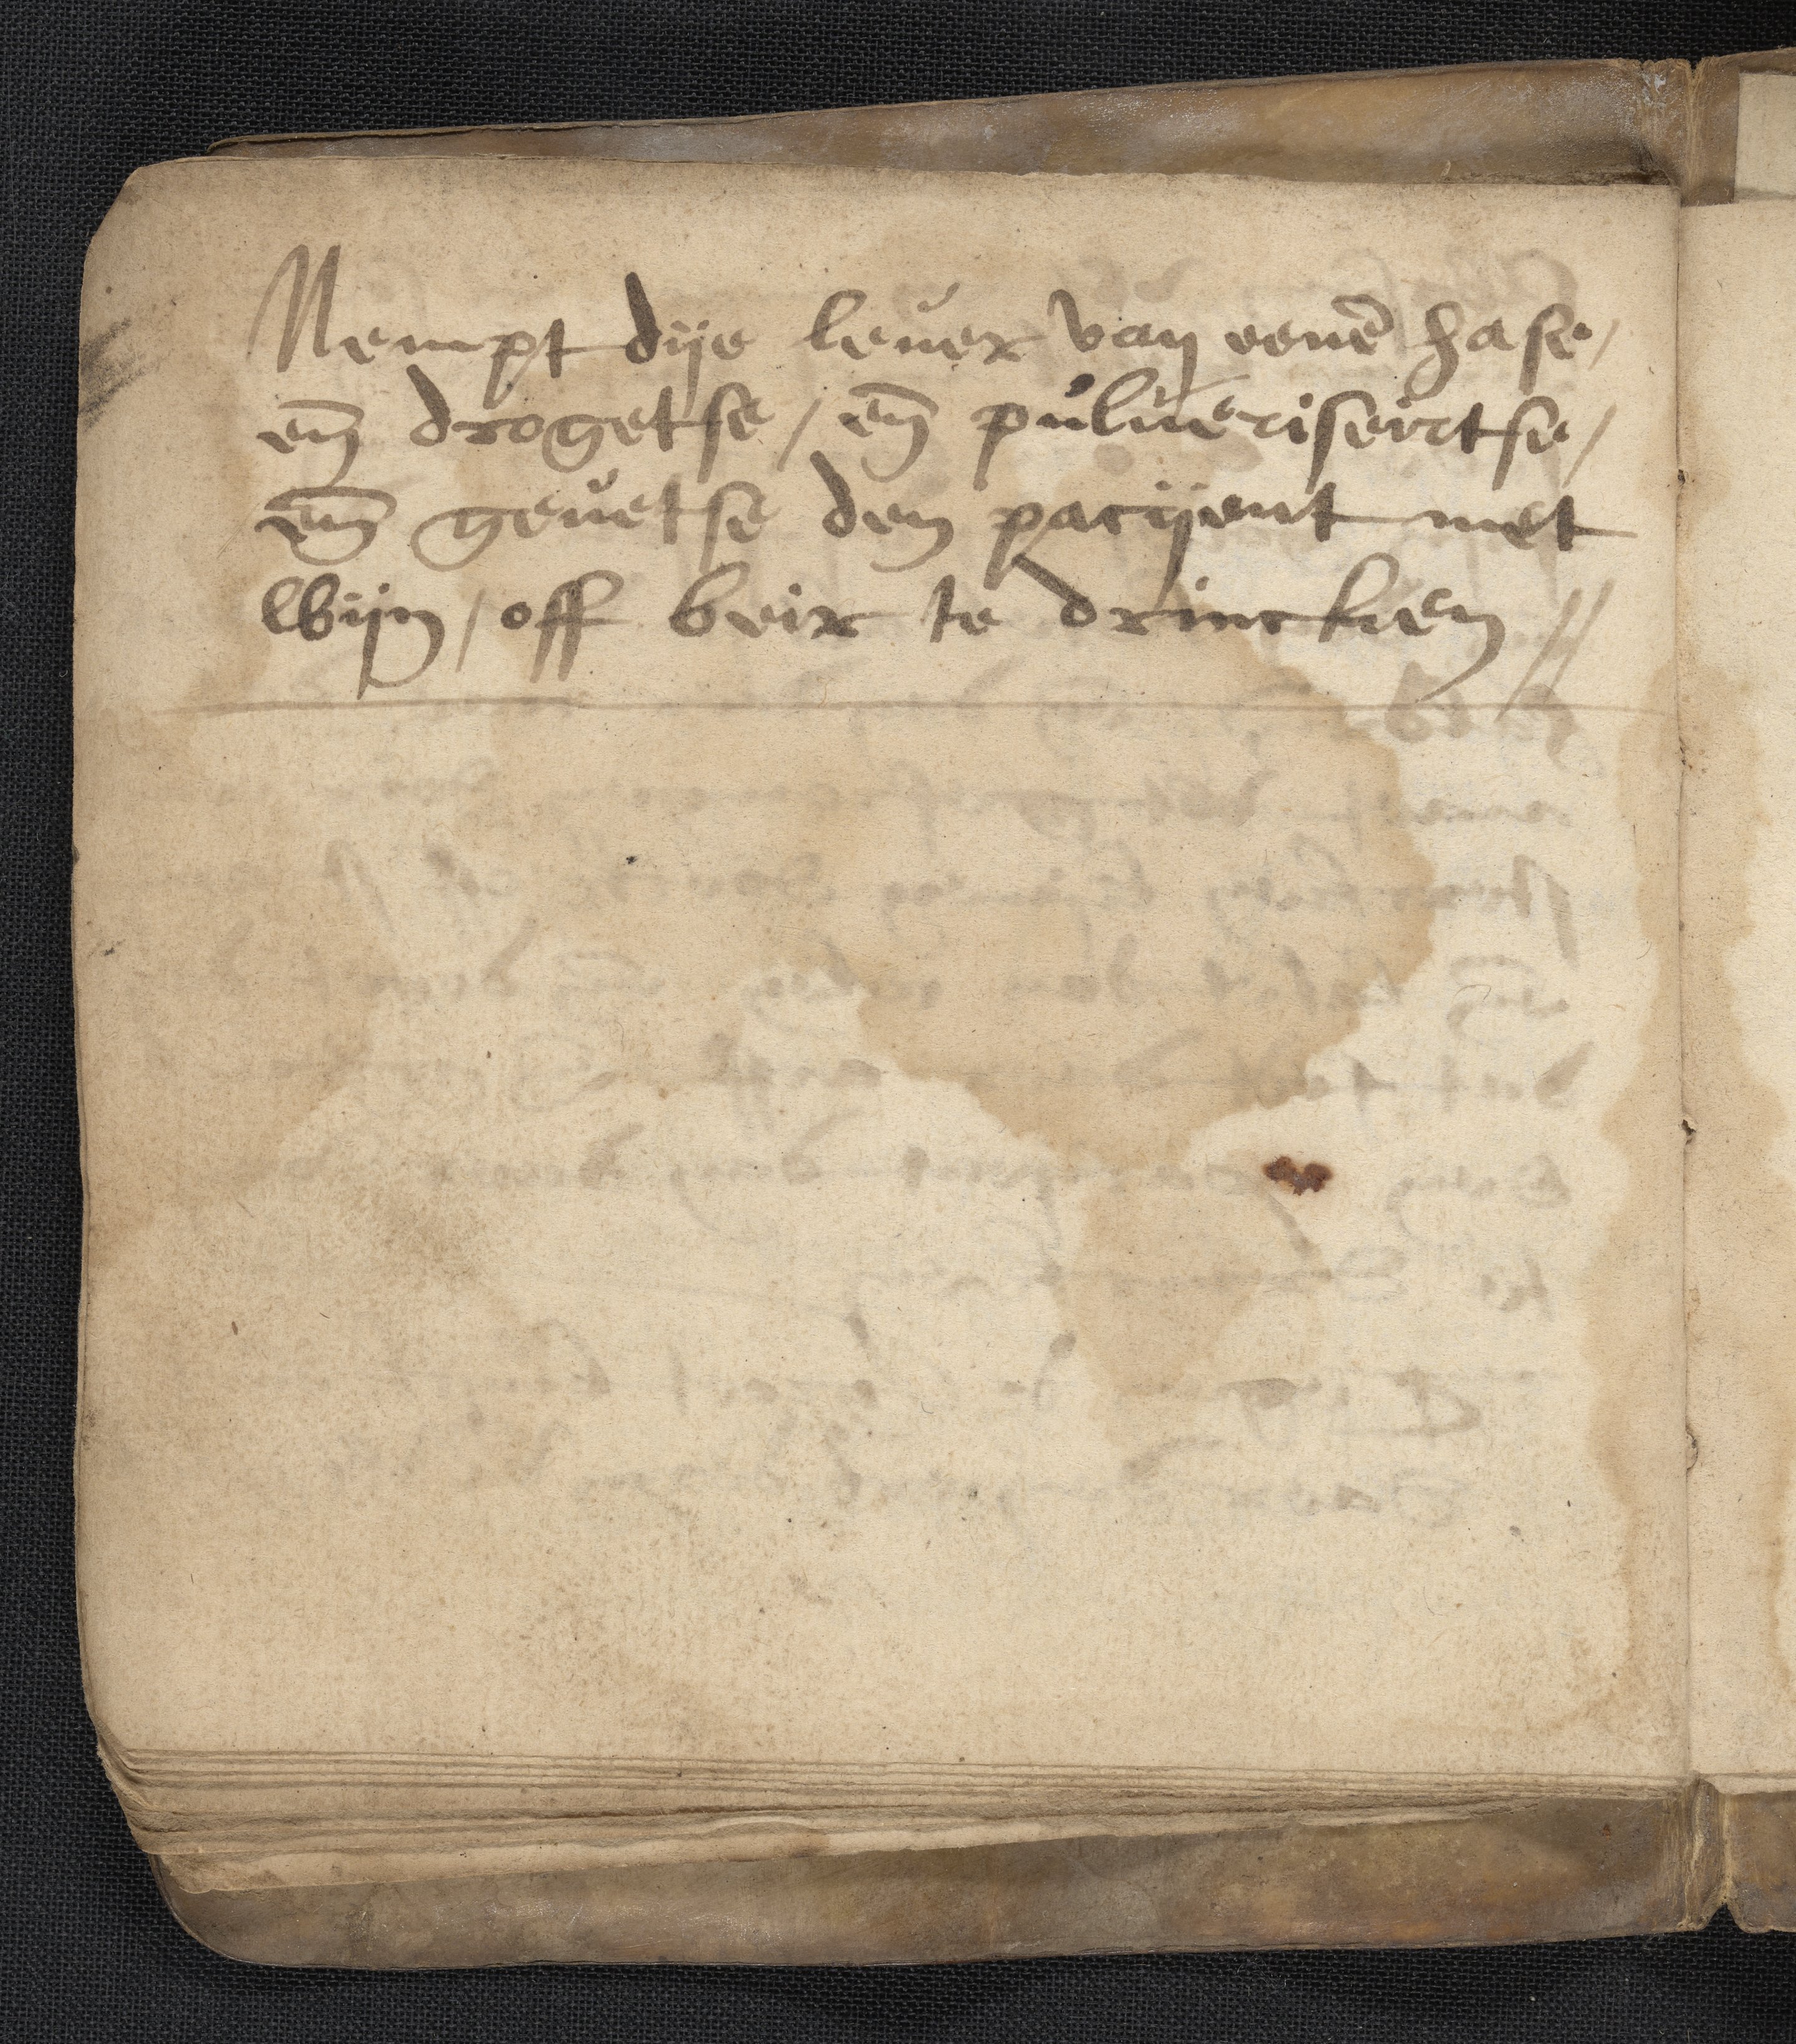 Nempt dije leuer van eenē hase /
en̄ drogetse / en̄ pulueriseirtse /
en̄ geuetse den pacijent met
wijn / off beir te drincken //